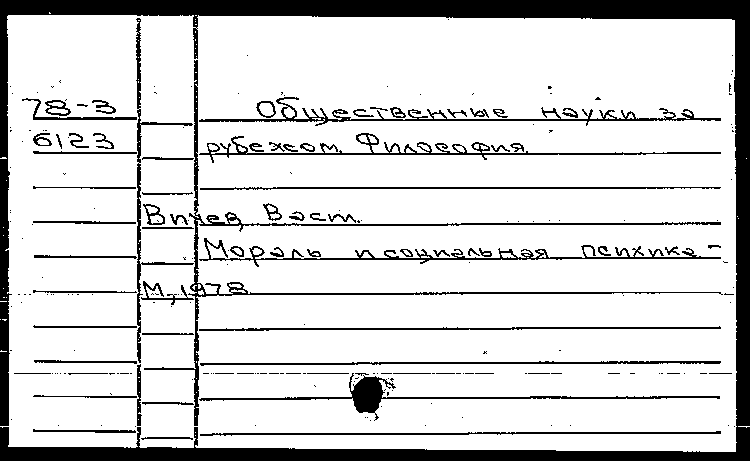 78-3 Общественные науки за
6123 рубежом. Философия.
Вичев, Васил.
Мораль и социальная психика -
М., 1978